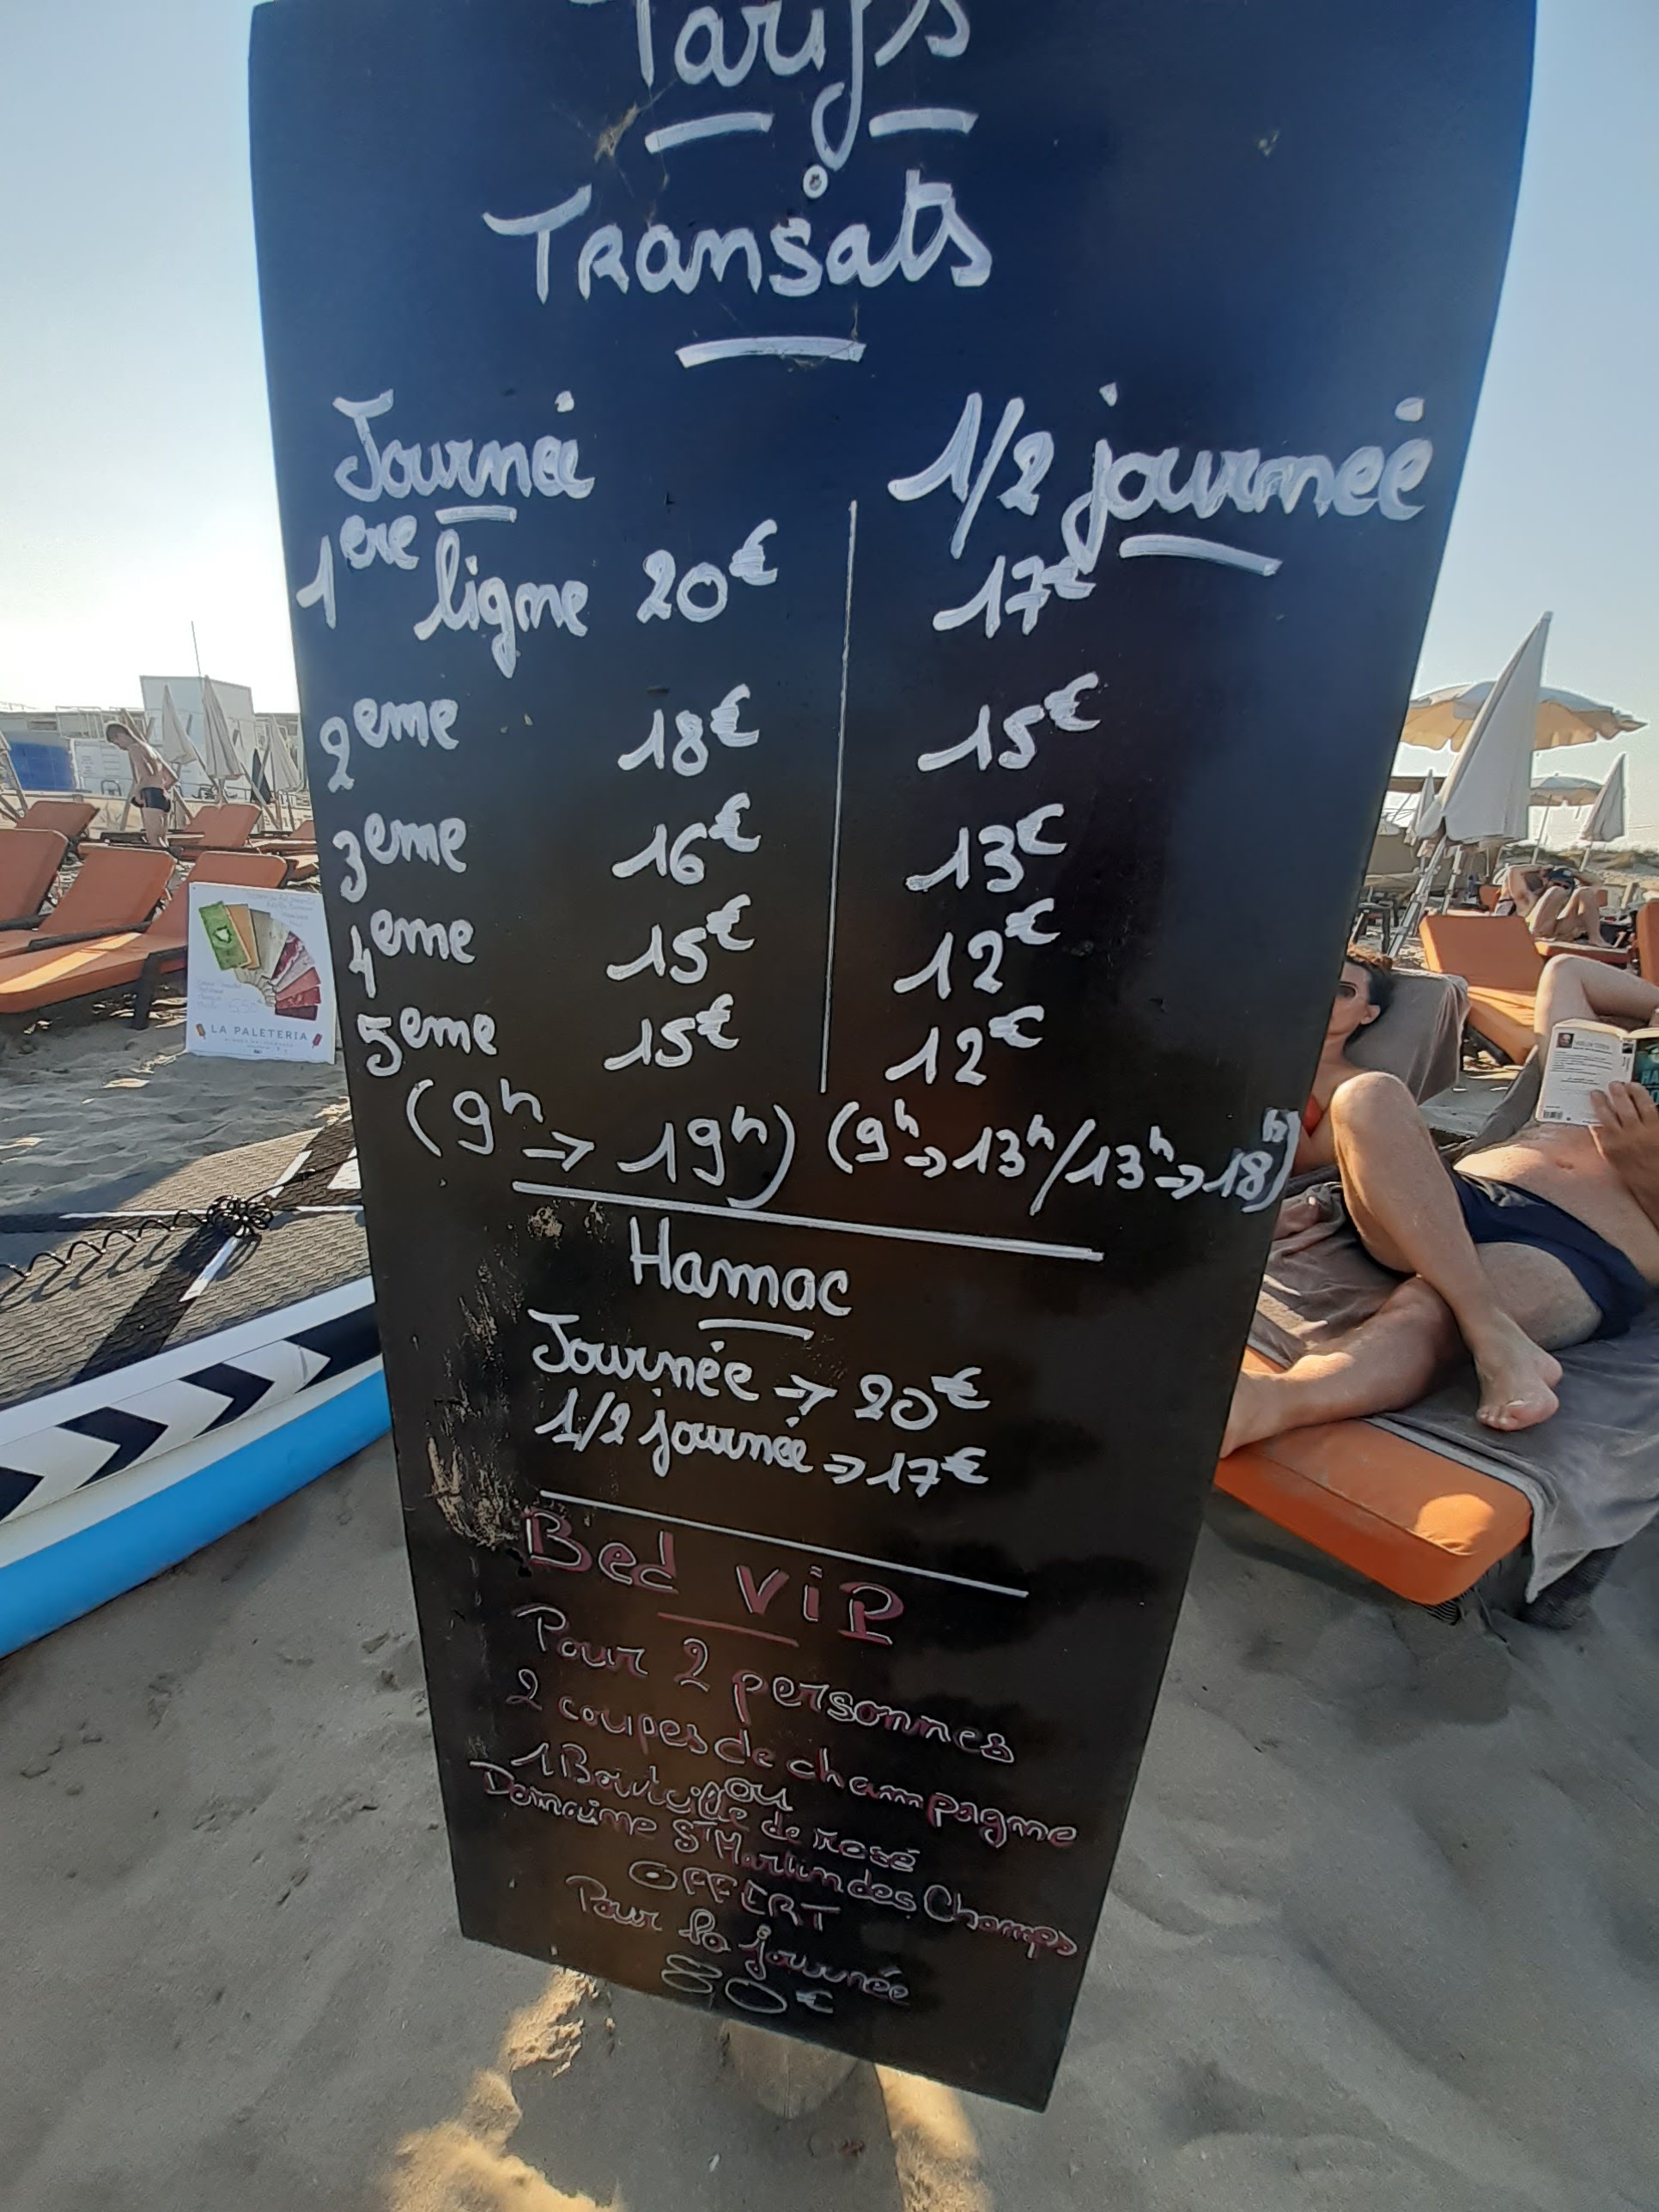 Tarifs
Transats
Journée 1/2 journée
1ere ligne 20€ 17€
2eme 18€ 15€
3eme 16€ 13€
4eme 15€ 12€
5eme 15€ 12€
(9h → 19h) (9h → 13h / 13h → 18h)
Hamac
Journée → 20€
1/2 journée → 17€
Bed ViP
Pour 2 personnes
2 coupes de champagne
ou
1 Bouteille de rosé
Domaine St Martin des Champs
OFFERT
Pour la journée
80€
LA PALETERIA